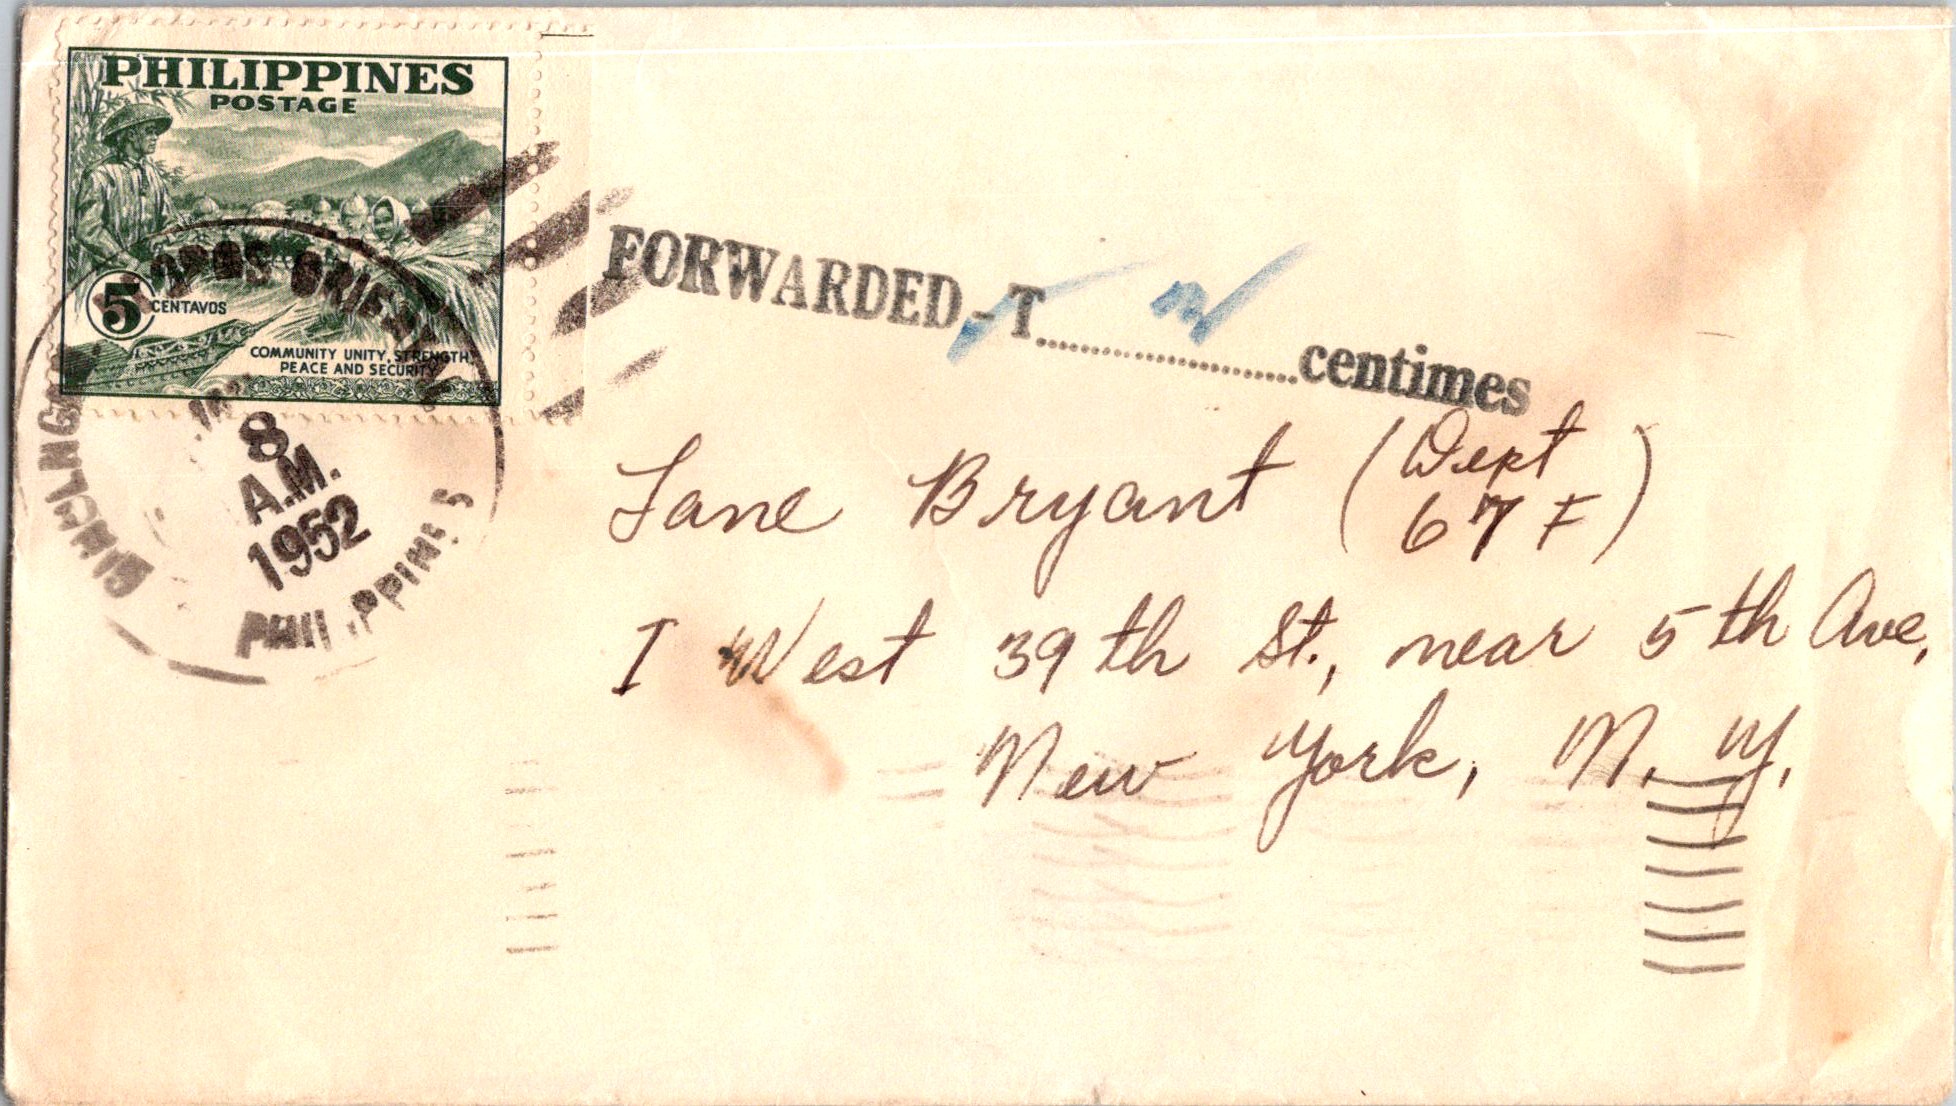 PHILIPPINES
POSTAGE
5 CENTAVOS
COMMUNITY UNITY, STRENGTH,
PEACE AND SECURITY
8
A.M.
1952
PHILIPPINES
FORWARDED - T.......................centimes
Lane Bryant (Dept 67 F)
I West 39th St., near 5th Ave,
New York, N. Y.